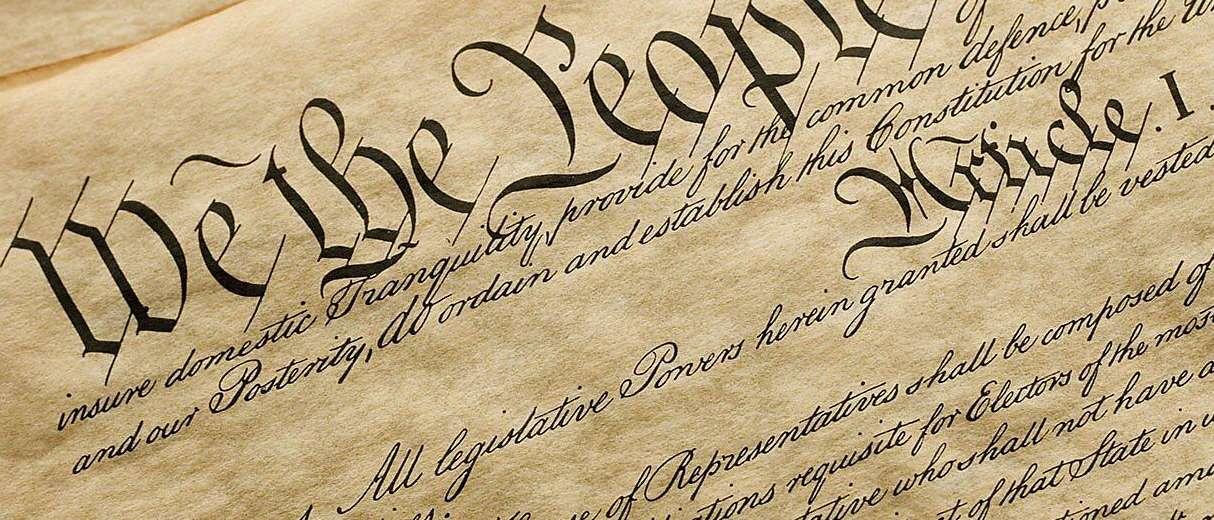 We the People
of
insure domestic Tranquility, provide for the common defence,
and our Posterity, do ordain and establish this Constitution for the
Article. I.
All legislative Powers herein granted shall be vested
of Representatives shall be composed of
requisite for Electors of the most
who shall not have
of that State in